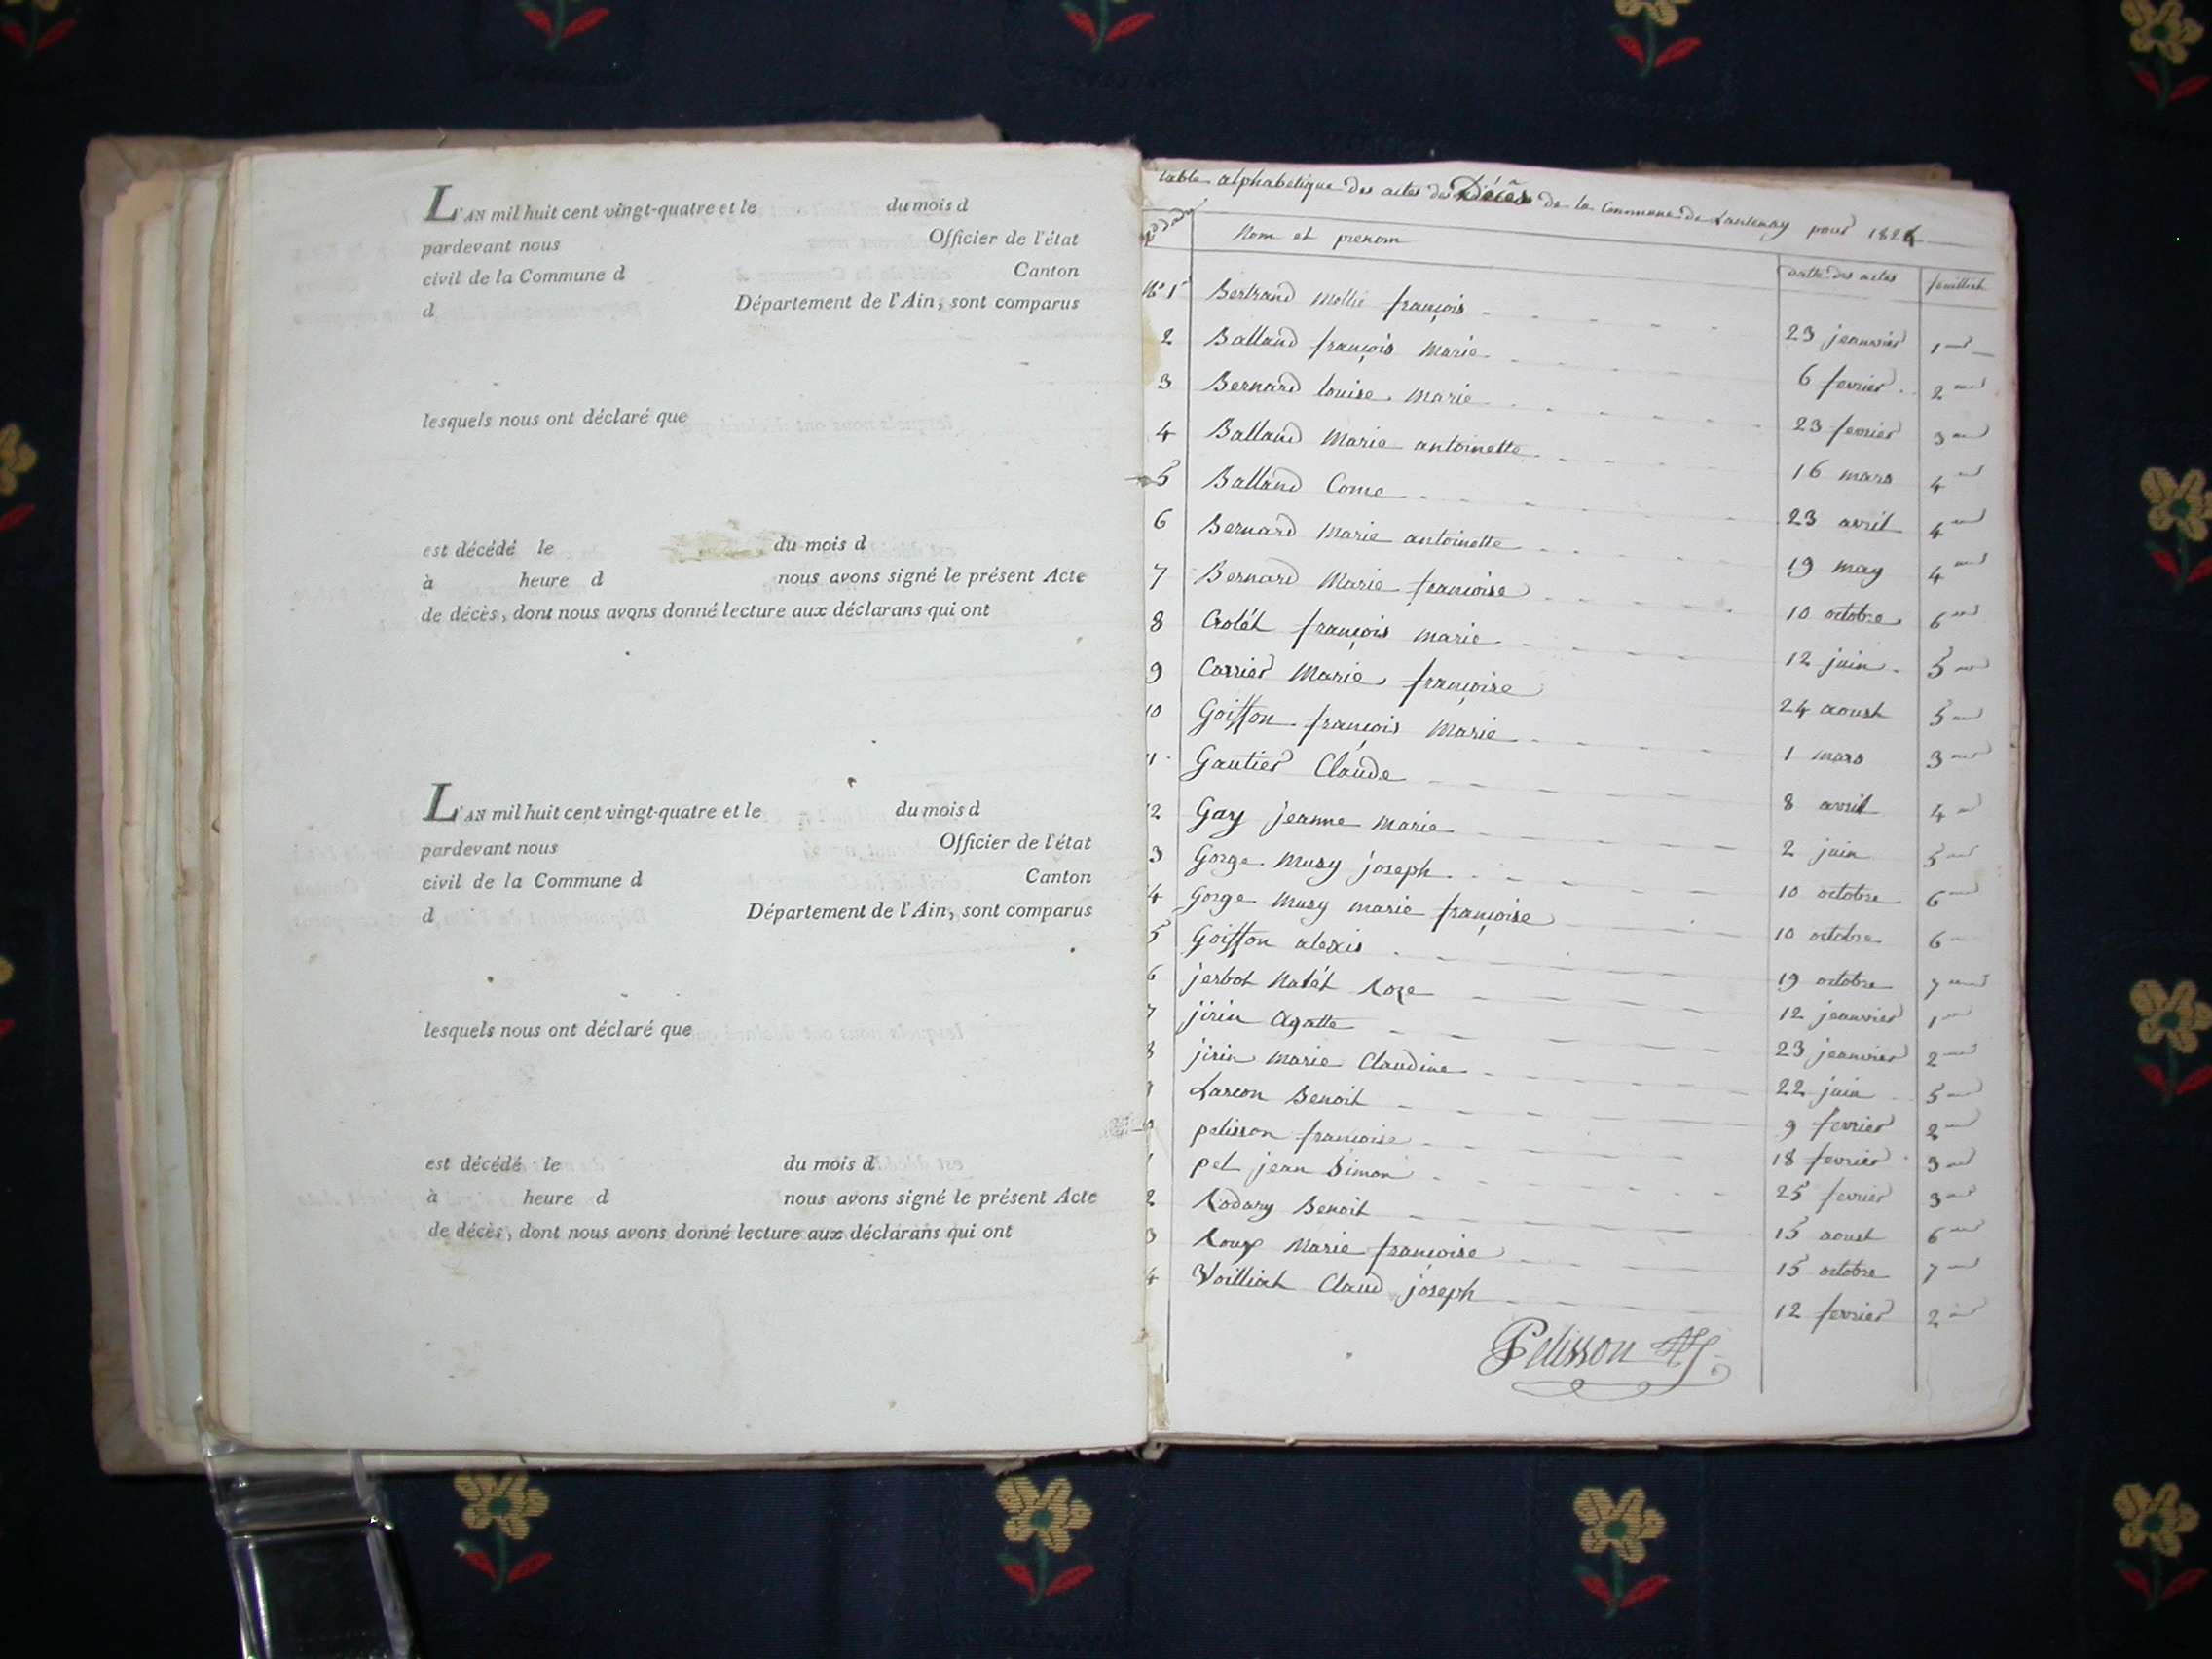 L'AN mil huit cent vingt-quatre et le du mois d
pardevant nous Officier de l'état
civil de la Commune d Canton
d Département de l'Ain, sont comparus
lesquels nous ont déclaré que
est décédé le du mois d
à heure d nous avons signé le présent Acte
de décès, dont nous avons donné lecture aux déclarans qui ont
L'AN mil huit cent vingt-quatre et le du mois d
pardevant nous Officier de l'état
civil de la Commune d Canton
d Département de l'Ain, sont comparus
lesquels nous ont déclaré que
est décédé le du mois d
à heure d nous avons signé le présent Acte
de décès, dont nous avons donné lecture aux déclarans qui ont
table alphabetique des actes de Décès de la Commune de Lantenay pour 1824
Nom et prenom datte des actes feuillet
N° 1 Bertrand Mollie françois 23 jeanvier 1
2 Balland françois Marie 6 fevrier 2
3 Bernard louise Marie 23 fevrier 3
4 Balland Marie antoinette 16 mars 4
5 Balland Come 23 avril 4
6 Bernard Marie antoinette 19 may 4
7 Bernard Marie françoise 10 octobre 6
8 Crolét françois marie 12 juin 5
9 Carrier Marie françoise 24 aoust 5
10 Goiffon françois Marie 1 mars 3
11 Gautier Claude 8 avril 4
2 Gay jeanne Marie 2 juin 5
3 Gorge Musy joseph 10 octobre 6
4 Gorge Musy marie françoise 10 octobre 6
5 Goiffon alexis 19 octobre 7
6 jerbot Natét Roze 12 jeanvier 1
7 jirin Agatte 23 jeanvier 2
8 jirin Marie Claudine 22 juin 5
Larcon Benoit 9 fevrier 2
pelisson françoise 18 fevrier 3
1 pet jean Simon 25 fevrier 3
2 Rodary Benoit 15 aoust 6
3 Roux Marie françoise 15 octobre 7
4 Voilliat Claud joseph 12 fevrier 2
Pelisson